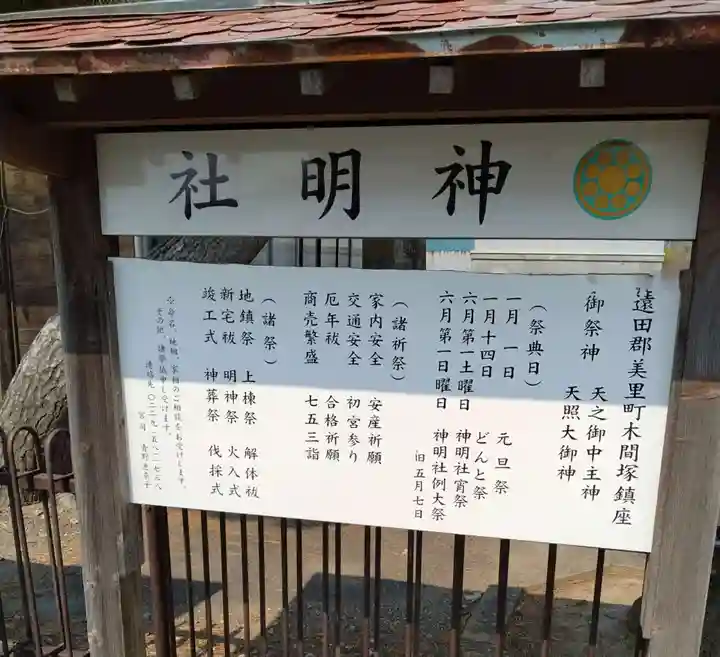 神明社
遠田郡美里町木間塚鎮座
御祭神 天之御中主神
天照大御神
（祭典日）
一月 一日 元旦祭
一月十四日 どんと祭
六月第一土曜日 神明社宵祭
六月第一日曜日 神明社例大祭
旧五月七日
（諸祈祭）
家内安全 安産祈願
交通安全 初宮参り
厄年祓 合格祈願
商売繁盛 七五三詣
（諸祭）
地鎮祭 上棟祭 解体祓
新宅祓 明神祭 火入式
竣工式 神葬祭 伐採式
命名、地相、家相のご相談をお受けします。
その他、
連絡先
宮司